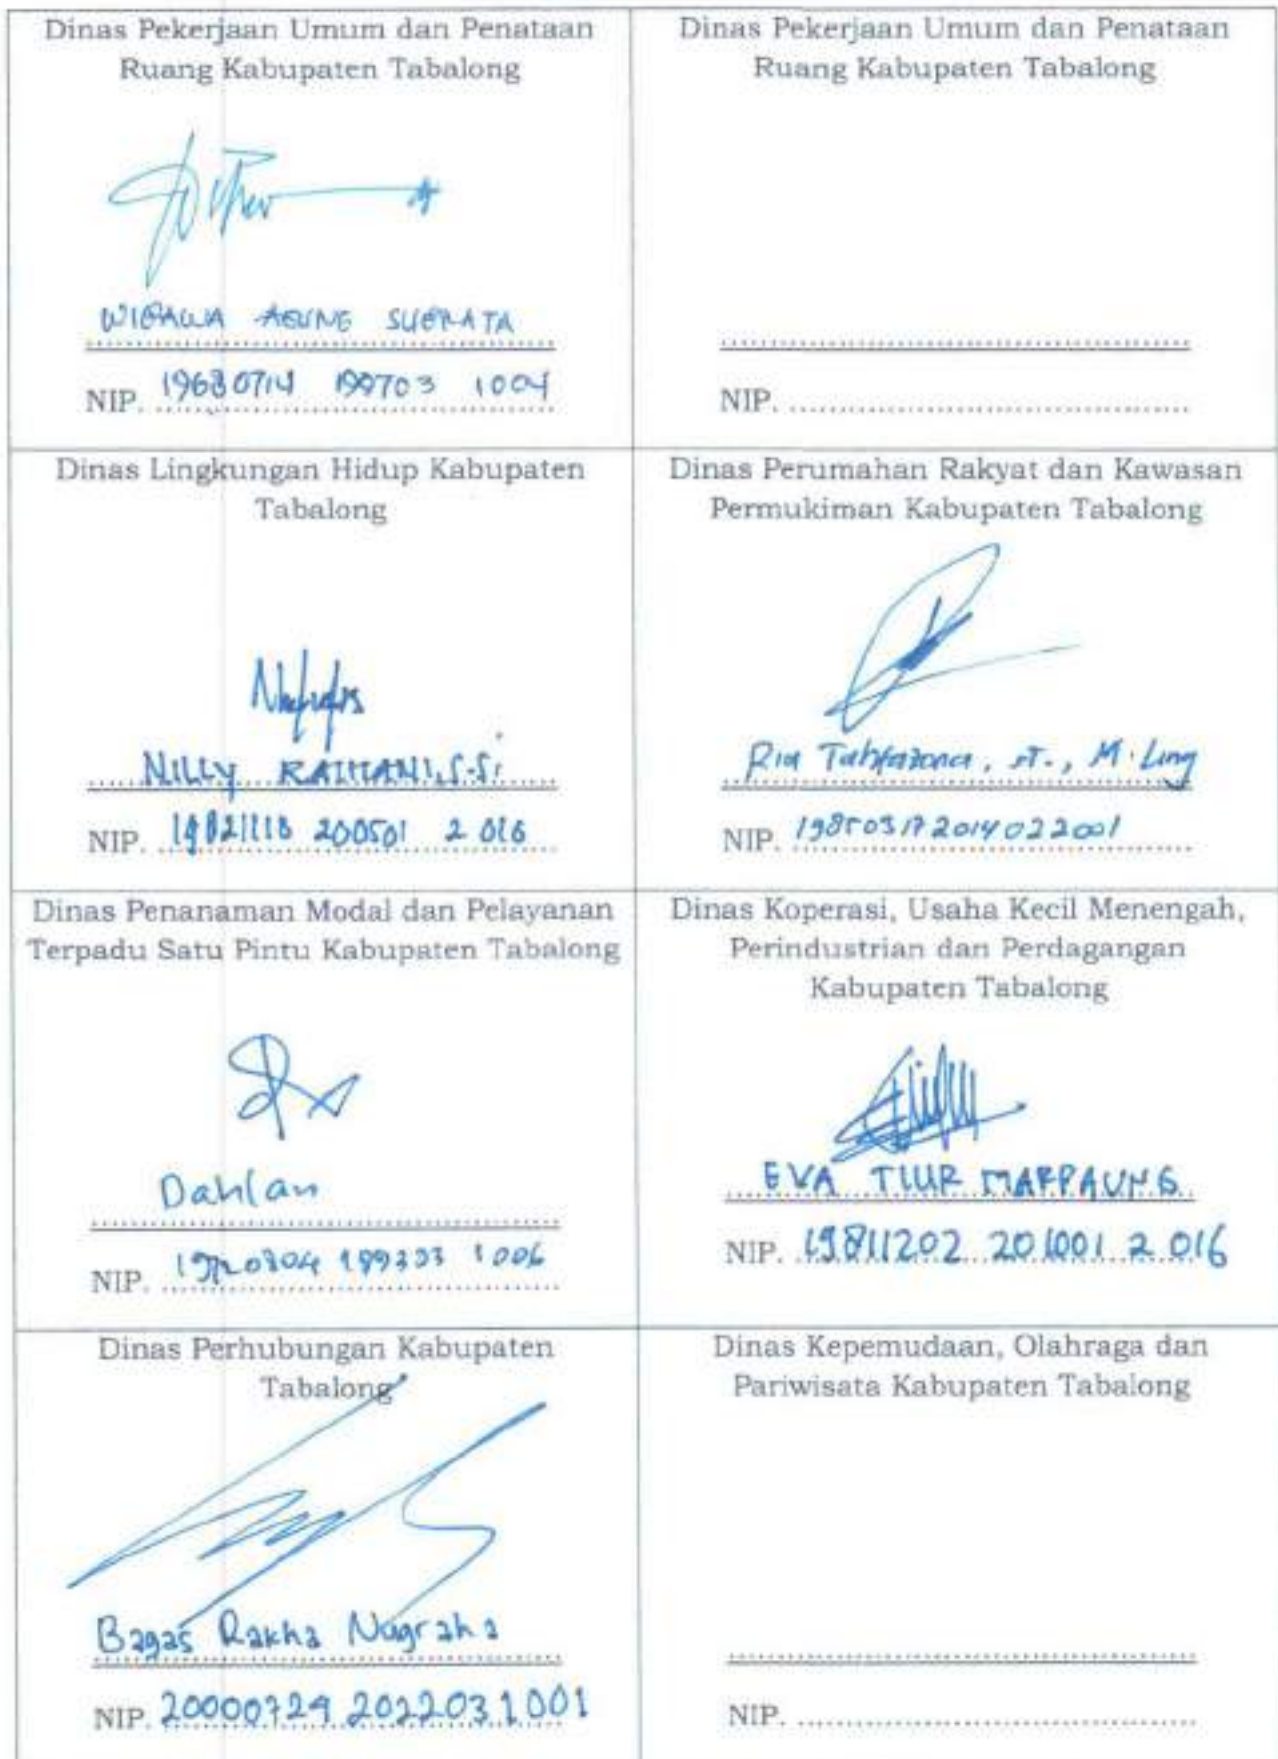 Dinas Pekerjaan Umum dan Penataan
Ruang Kabupaten Tabalong
WIBAWA AGUNG SUBRATA
NIP. 19630714 199703 1004
Dinas Pekerjaan Umum dan Penataan
Ruang Kabupaten Tabalong
NIP.
Dinas Lingkungan Hidup Kabupaten
Tabalong
NILLY RAIHANI, S.Si
NIP. 19821118 200501 2 016
Dinas Perumahan Rakyat dan Kawasan
Permukiman Kabupaten Tabalong
Ria , ST., M.Ling
NIP. 198503172014022001
Dinas Penanaman Modal dan Pelayanan
Terpadu Satu Pintu Kabupaten Tabalong
Dahlan
NIP. 199303 1006
Dinas Koperasi, Usaha Kecil Menengah,
Perindustrian dan Perdagangan
Kabupaten Tabalong
EVA TIUR MARPAUNG
NIP. 19811202 201001 2 016
Dinas Perhubungan Kabupaten
Tabalong
Bagas Rakha Nugraha
NIP. 20000729 202203 1 001
Dinas Kepemudaan, Olahraga dan
Pariwisata Kabupaten Tabalong
NIP.